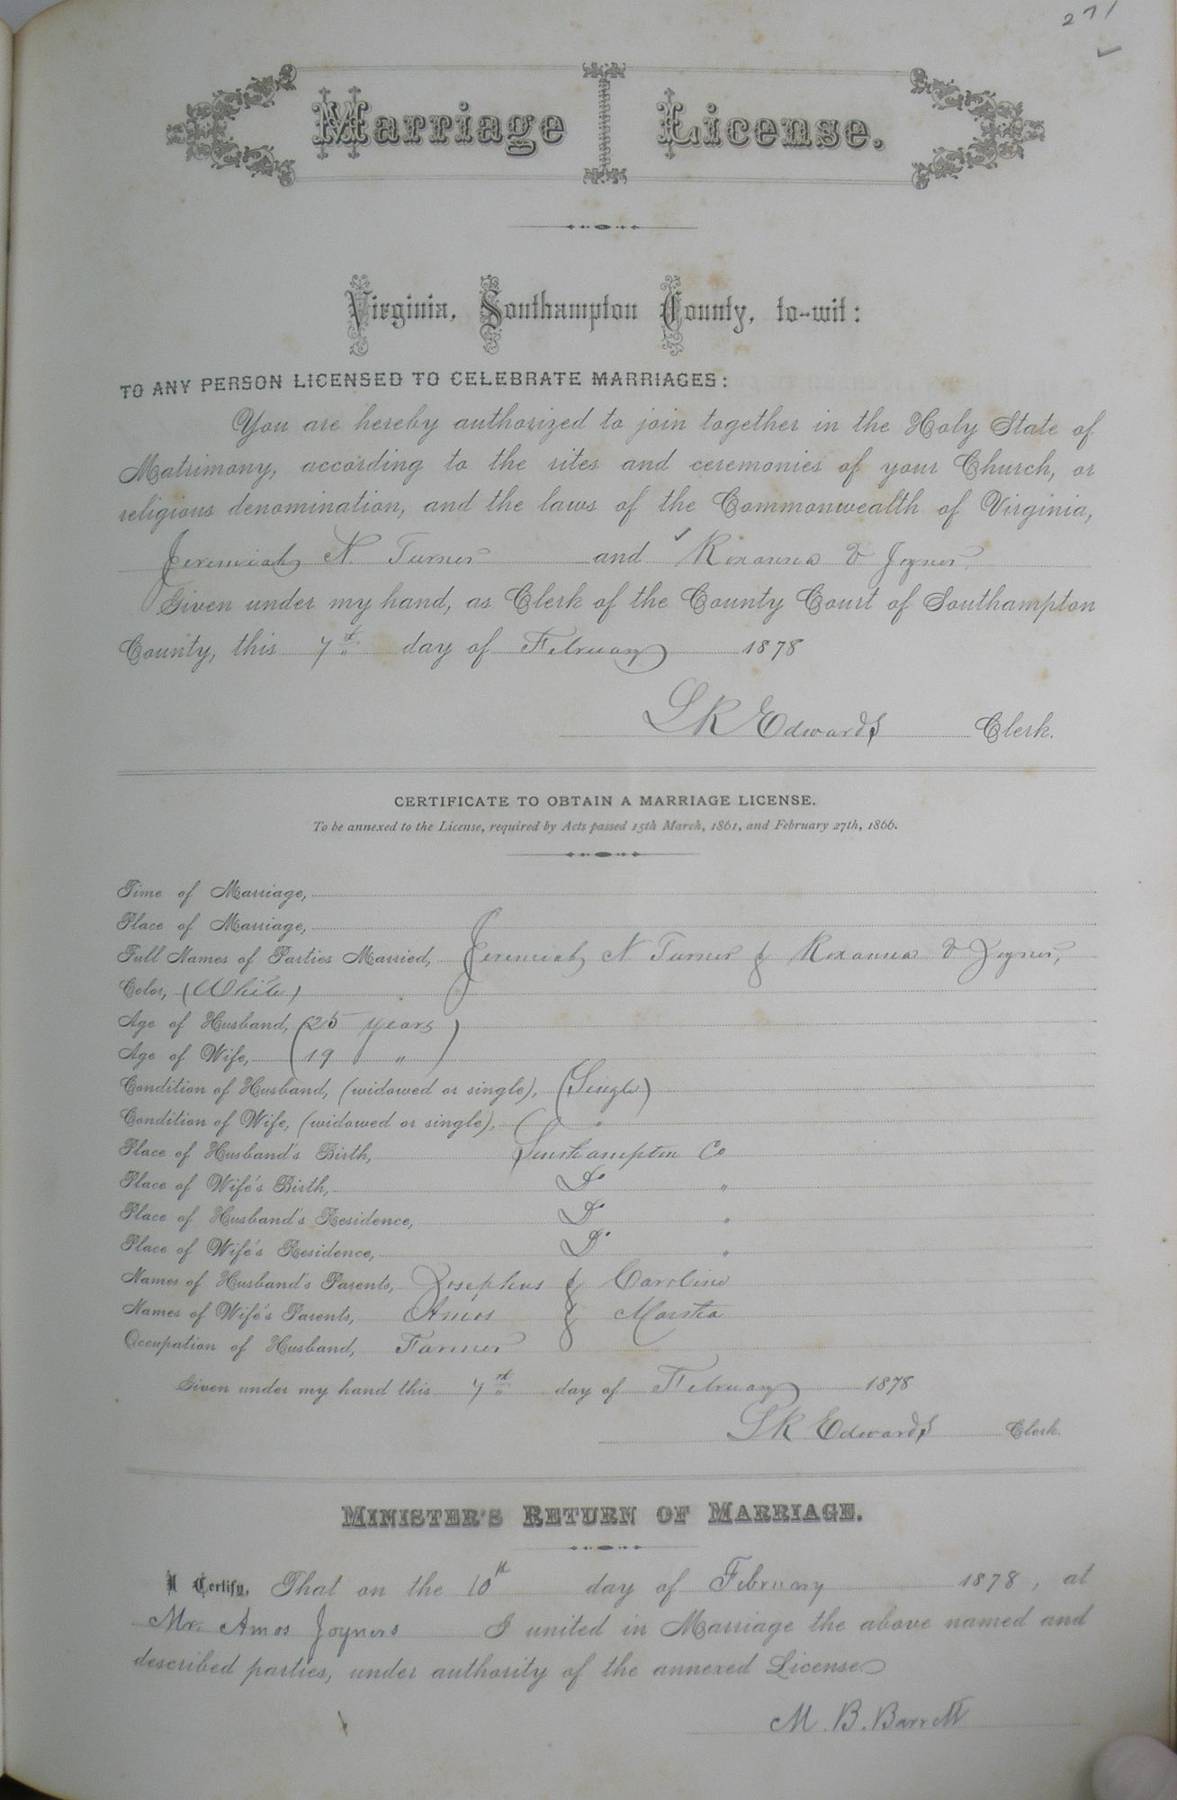 271
Marriage License.
Virginia, Southampton County, to-wit:
TO ANY PERSON LICENSED TO CELEBRATE MARRIAGES:
You are hereby authorized to join together in the Holy State of
Matrimony, according to the rites and ceremonies of your Church, or
religious denomination, and the laws of the Commonwealth of Virginia,
Jeremiah N. Turner and Roxanna Joyner
Given under my hand, as Clerk of the County Court of Southampton
County, this 7th day of February 1878
L R Edwards Clerk.
CERTIFICATE TO OBTAIN A MARRIAGE LICENSE.
To be annexed to the License, required by Acts passed 15th March, 1861, and February 27th, 1866.
Time of Marriage,
Place of Marriage,
Full Names of Parties Married, Jeremiah N Turner & Roxanna Joyner,
Color, (White)
Age of Husband, (25 years)
Age of Wife, (19 ")
Condition of Husband, (widowed or single), (Single)
Condition of Wife, (widowed or single), "
Place of Husband's Birth, Southampton Co
Place of Wife's Birth, Do "
Place of Husband's Residence, Do "
Place of Wife's Residence, Do "
Names of Husband's Parents, Josephus & Caroline
Names of Wife's Parents, Amos & Marsha
Occupation of Husband, Farmer
Given under my hand this 7th day of February 1878
L R Edwards Clerk.
MINISTER'S RETURN OF MARRIAGE.
I Certify, That on the 10th day of February 1878, at
Mr. Amos Joyners I united in Marriage the above named and
described parties, under authority of the annexed License
M. B. Barrett